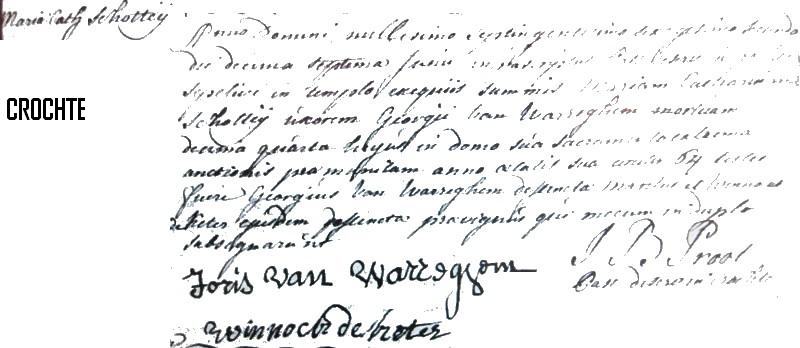 Maria Cath Schottey
CROCHTE
Anno Domini millesimo septingentesimo sexagesimo secundo
die decima septima Junii in
sepelivi in templo exequiis summis Mariam Catharinam
Schottey uxorem Georgii Van Warreghem mortuam
decima quarta hujus in domo sua sacramento
unctionis præmunitam anno ætatis suæ circa 64 testes
fuere Georgius Van Warreghem defunctæ maritus et Winnocus
de Keter ejusdem defunctæ privignus qui mecum in duplo
subsignarunt
J B Proot
Joris Van Warregem
Winnock de keter